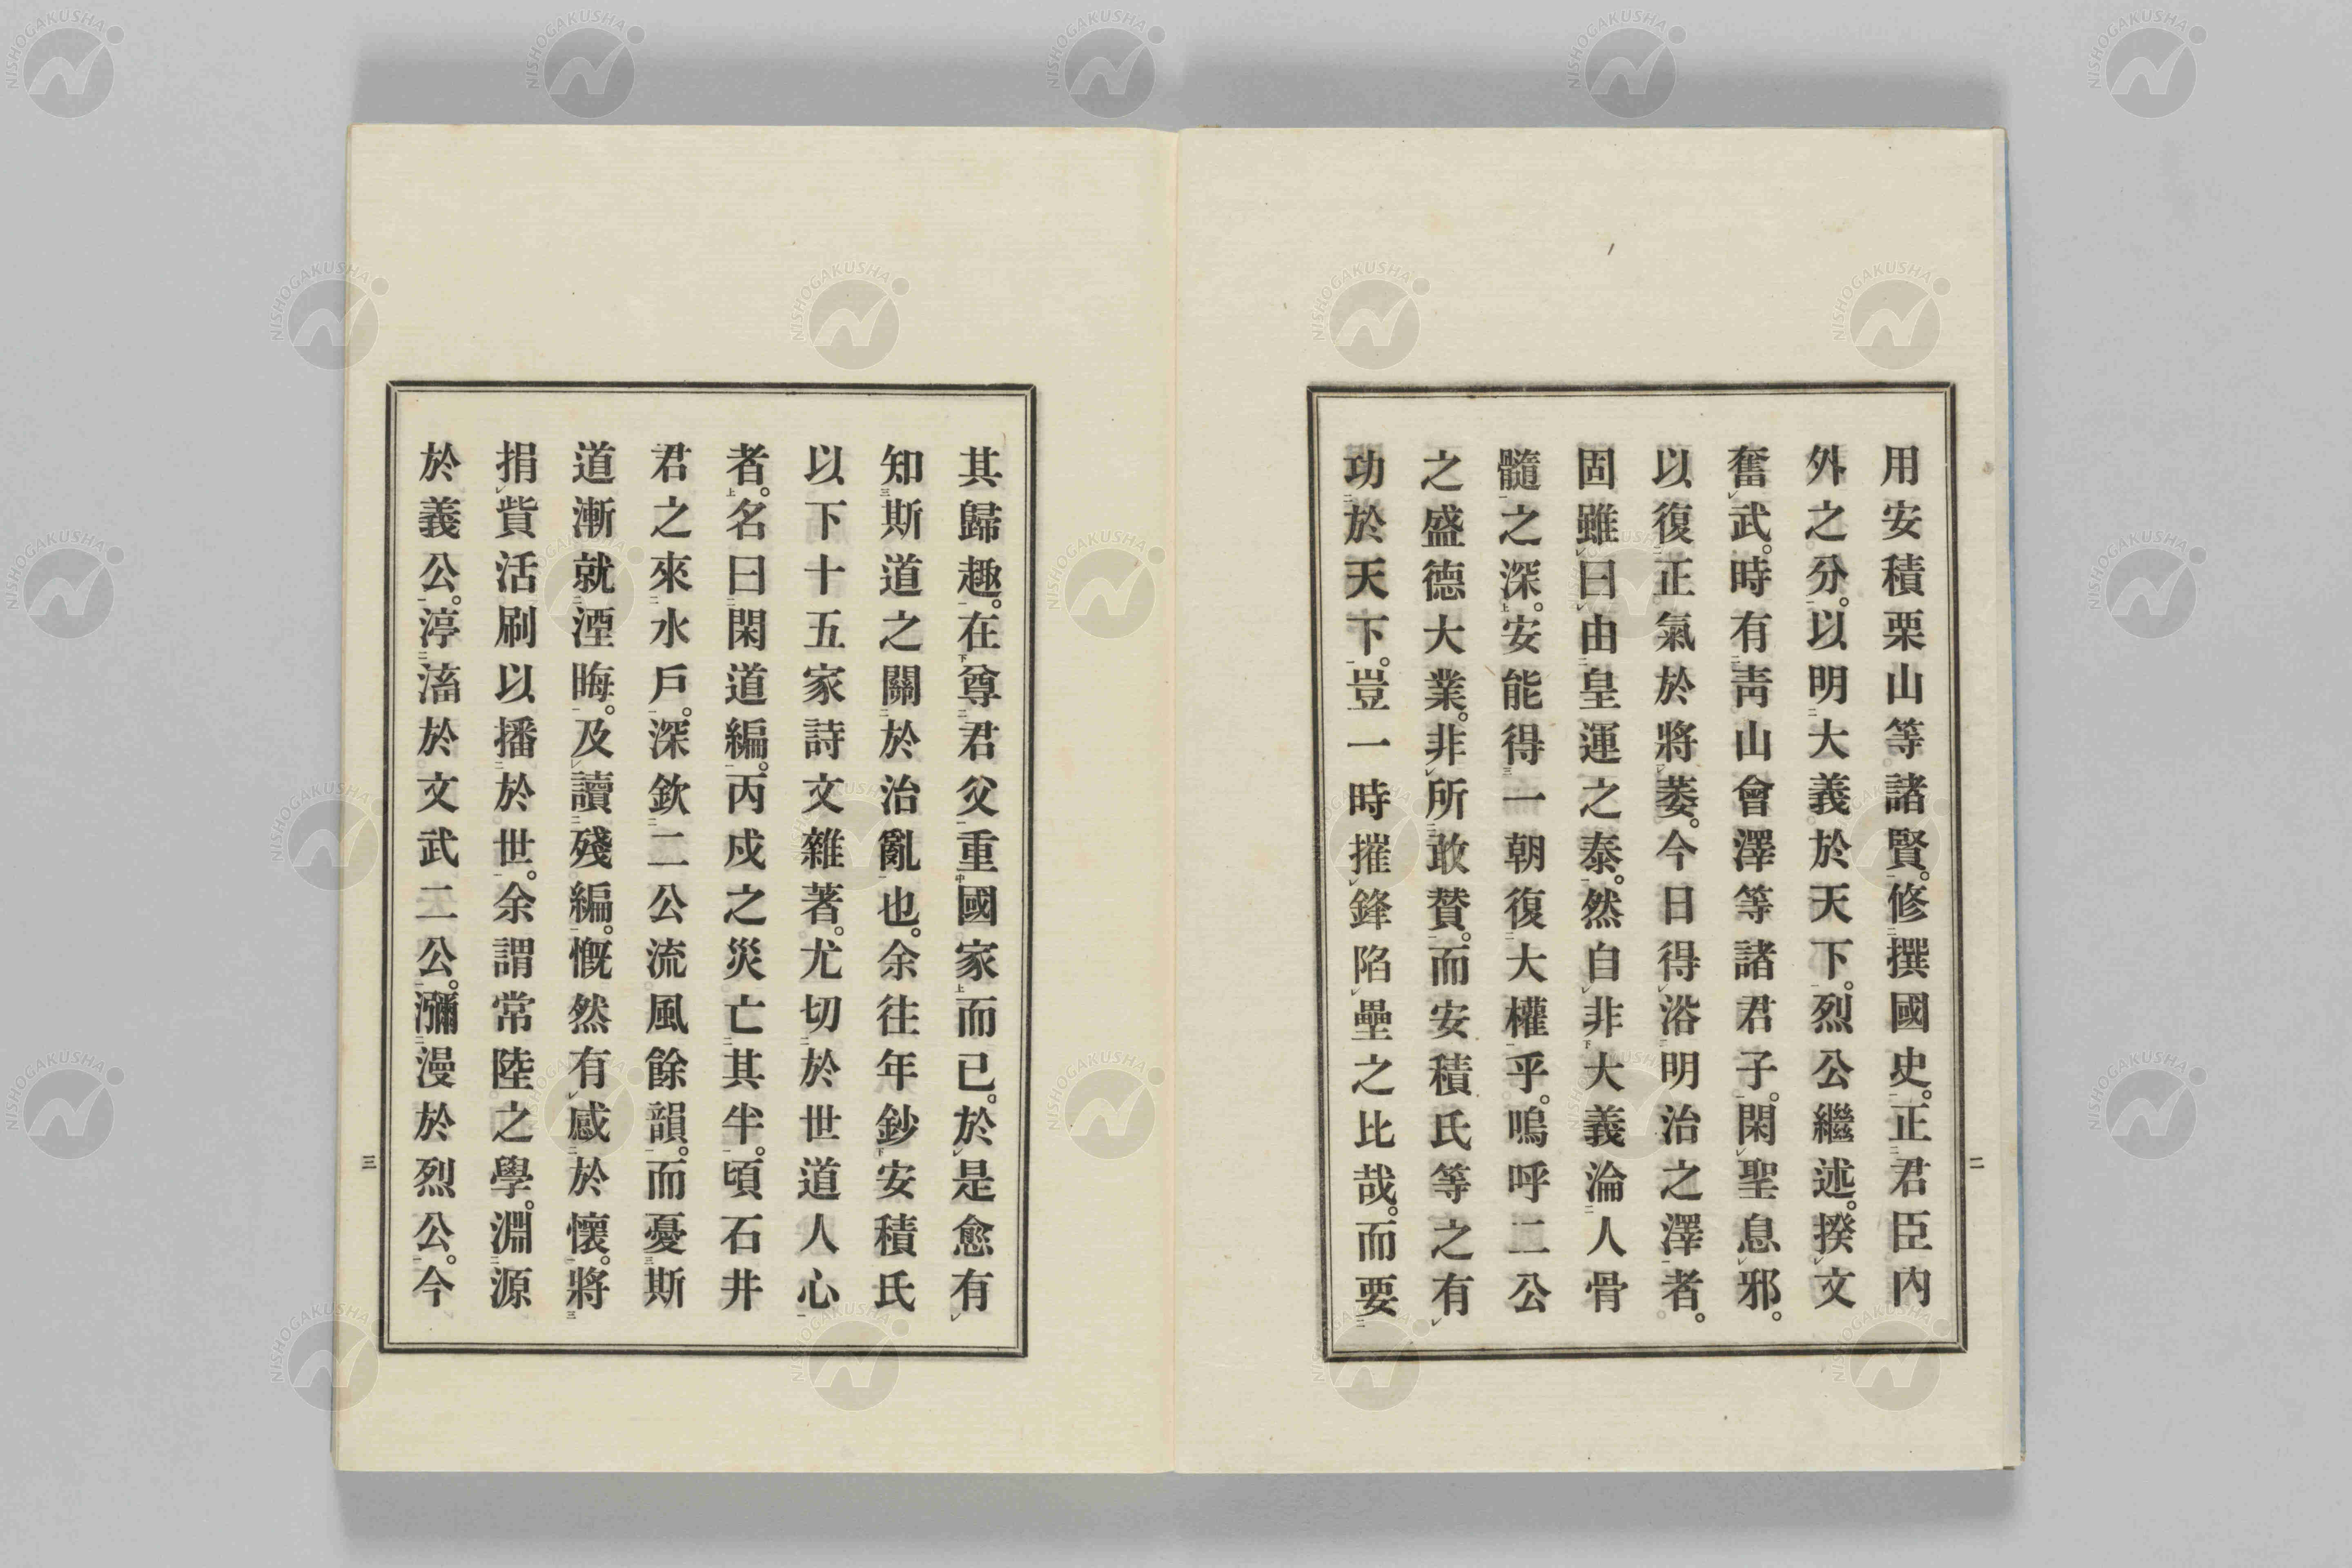 用安積栗山等諸賢。修撰國史。正君臣內
外之分。以明大義於天下。烈公繼述。揆文
奮武。時有靑山會澤等諸君子。閑聖息邪。
以復正氣於將萎。今日得浴明治之澤者。
固雖曰由皇運之泰。然自非大義淪人骨
髓之深。安能得一朝復大權乎。嗚呼二公
之盛德大業。非所敢贊。而安積氏等之有
功於天下。豈一時摧鋒陷壘之比哉。而要
二
其歸趣。在尊君父重國家而已。於是愈有
知斯道之關於治亂也。余往年鈔安積氏
以下十五家詩文雜著。尤切於世道人心
者。名曰閑道編。丙戌之災亡其半。頃石井
君之來水戶。深欽二公流風餘韻。而憂斯
道漸就湮晦。及讀殘編。慨然有感於懷。將
捐貲活刷以播於世。余謂常陸之學。淵源
於義公。渟滀於文武二公。瀰漫於烈公。今
三
NISHOGAKUSHA